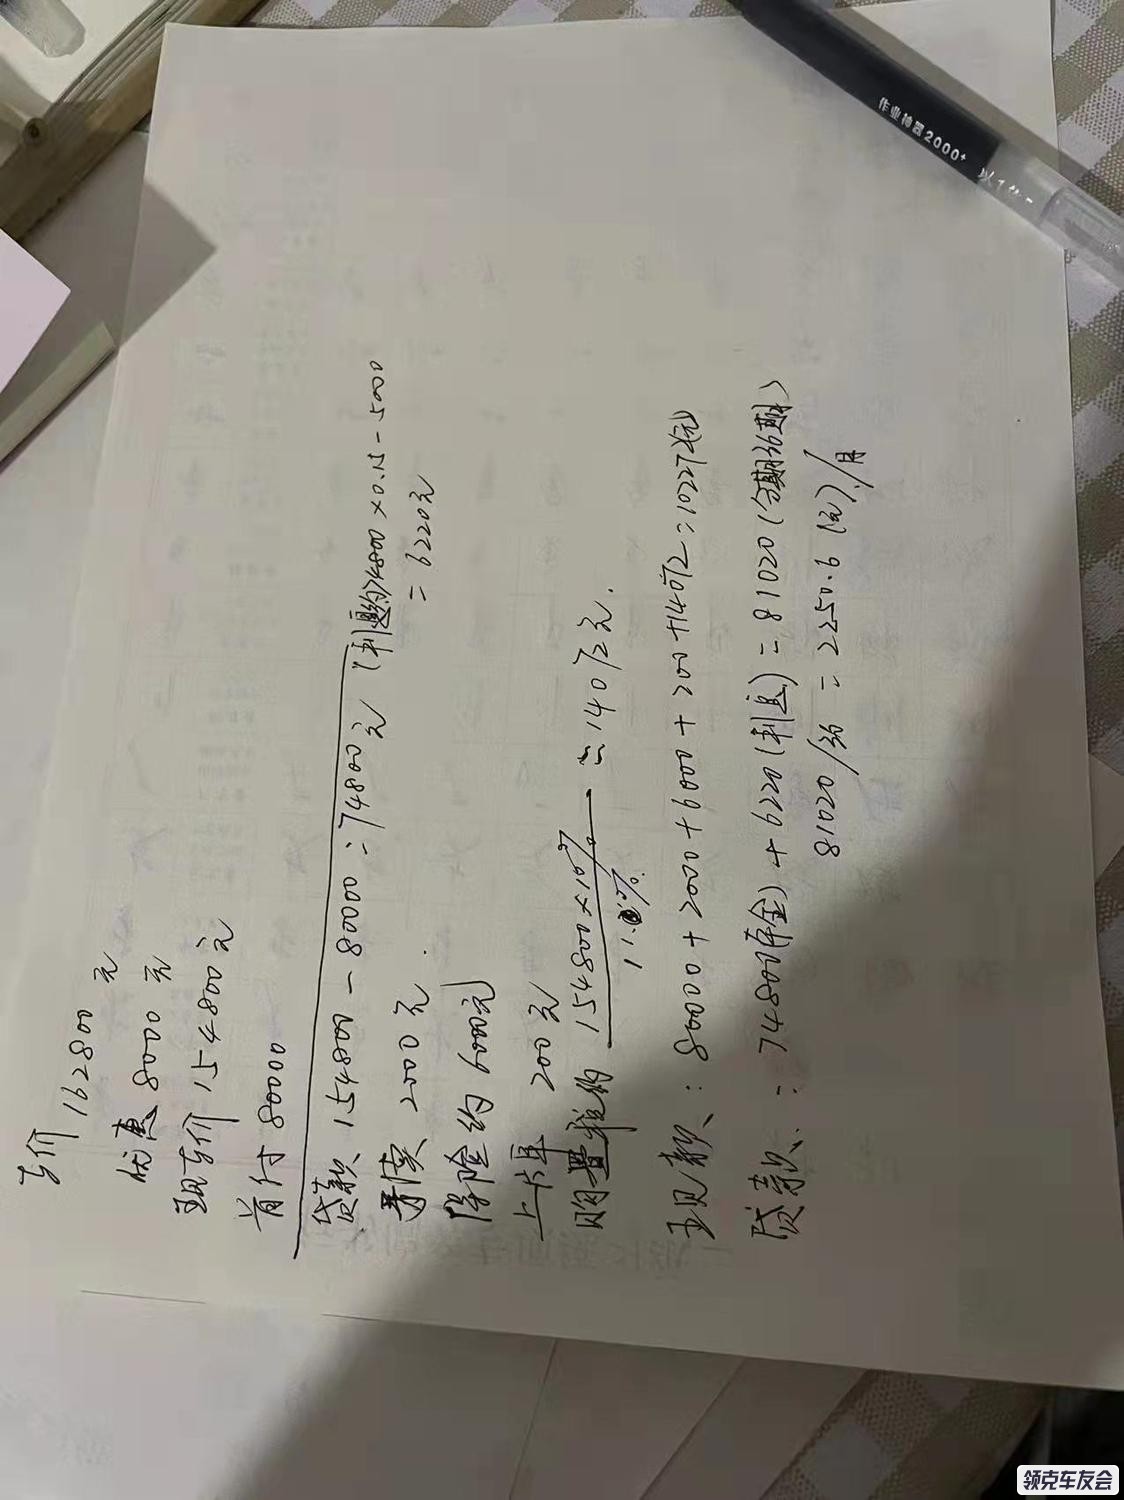 车价 162800 元
优惠 8000 元
现车价 154800 元
首付 80000
贷款 154800 - 80000 = 74800 元 (利息约74800 × 0.15 - 5000
= 6220元
手续 2000元.
保险约 6000元
上牌 200元
购置税约 154800×10% ≈ 14072元.
11.0%
现款: 80000 + 2000 + 6000 + 200 + 14072 = 102272(元)
贷款: 74800(本金) + 6220(利息) = 81020 (分期36期)
81020/36 = 2250.6 (元)/月
作业神器2000+
领克车友会